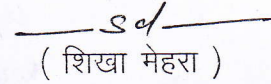 Sd
( शिखा मेहरा )